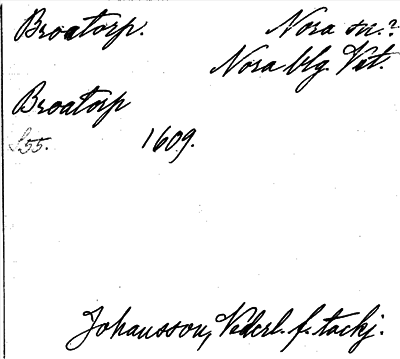 Broatorp. Nora sn.?
Nora blg. Vst.
Broatorp
1609.
Johansson, Nederl. f. tackj.